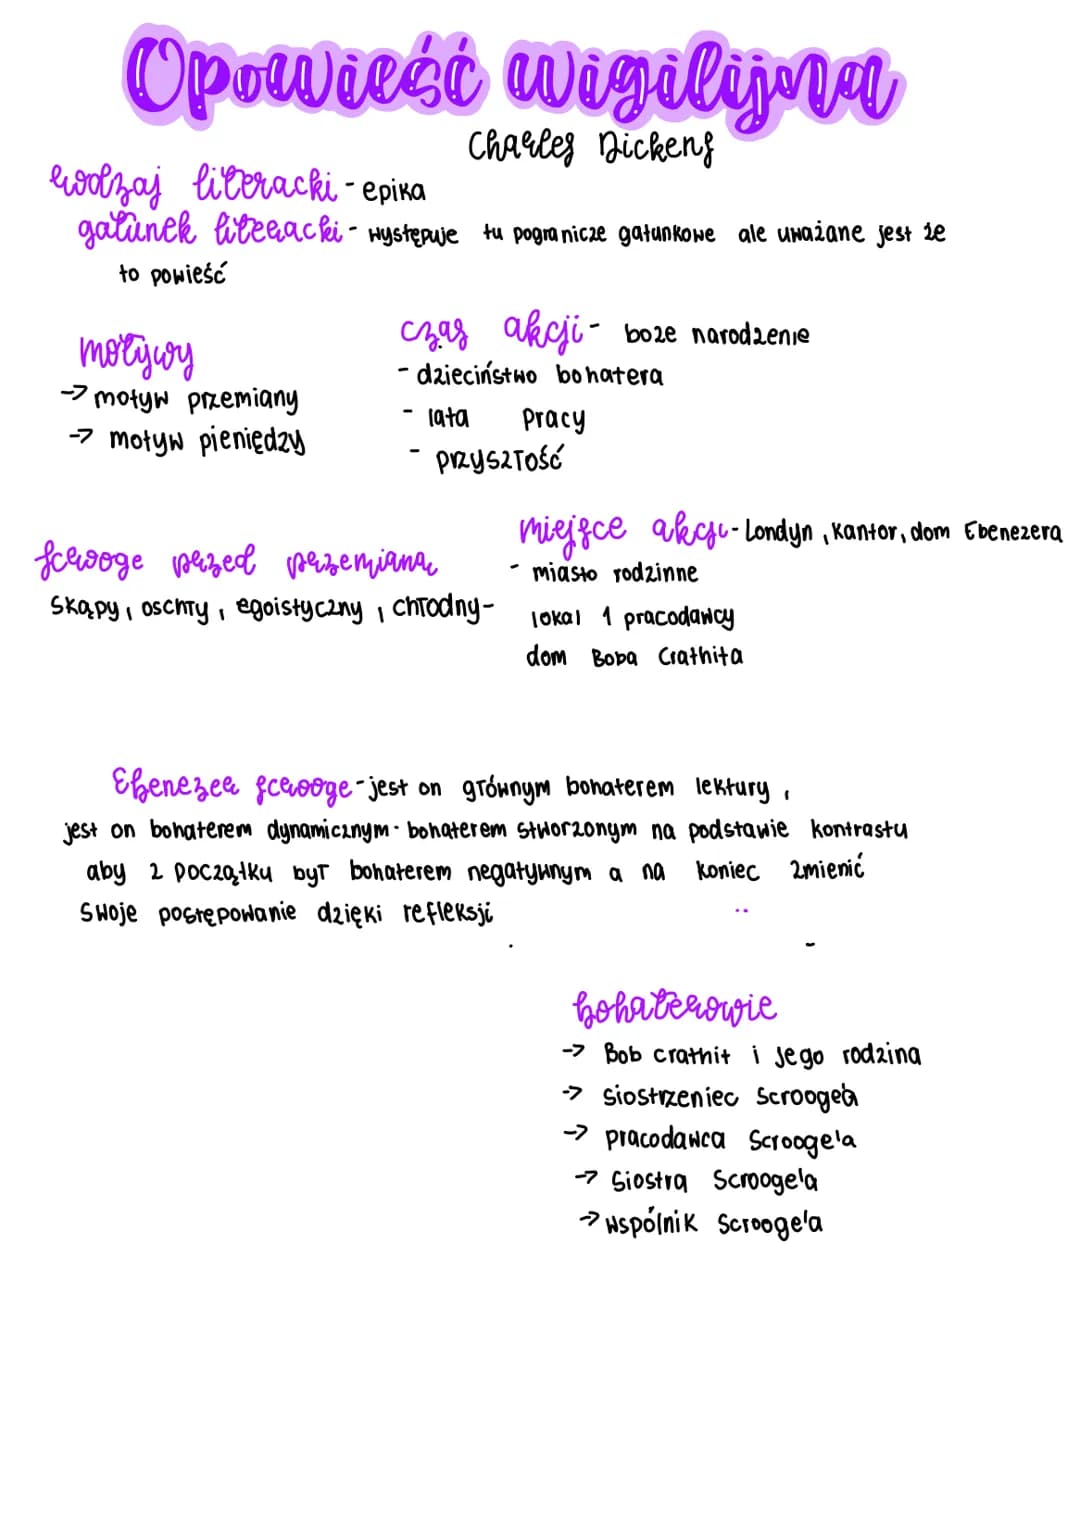 Opowieść wigilijna
Charles Dickens
rodzaj literacki - epika
gatunek literacki - występuje tu pogranicze gatunkowe ale uważane jest że
to powieść
motywy
→ motyw przemiany
→ motyw pieniędzy
czas akcji - boże narodzenie
- dzieciństwo bohatera
- lata pracy
- przyszłość
miejsce akcji - Londyn, kantor, dom Ebenezera
- miasto rodzinne
lokal 1 pracodawcy
dom Boba Crathita
scrooge przed przemianą
skąpy, oschły, egoistyczny, chłodny-
Ebenezer scrooge - jest on głównym bohaterem lektury,
jest on bohaterem dynamicznym - bohaterem stworzonym na podstawie kontrastu
aby z początku był bohaterem negatywnym a na koniec zmienić
swoje postępowanie dzięki refleksji
bohaterowie
→ Bob crathit i jego rodzina
→ siostrzeniec Scroogea
→ pracodawca Scrooge'a
→ siostra Scrooge'a
→ wspólnik Scrooge'a